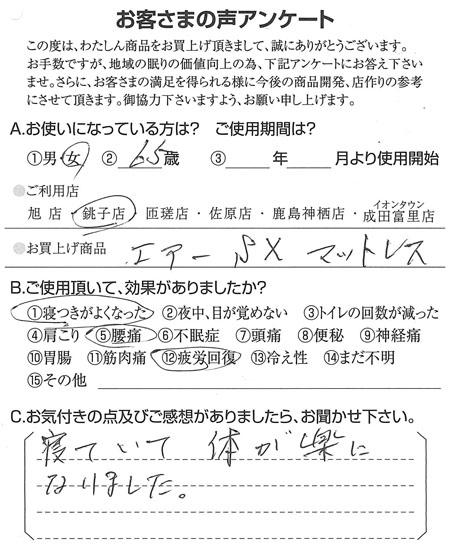 お客さまの声アンケート
この度は、わたしん商品をお買上げ頂きまして、誠にありがとうございます。
お手数ですが、地域の眠りの価値向上の為、下記アンケートにお答え下さい
ませ。さらに、お客さまの満足を得られる様に今後の商品開発、店作りの参考
にさせて頂きます。御協力下さいますよう、お願い申し上げます。
A.お使いになっている方は? ご使用期間は?
①男 女 ② 65 歳 ③ 年 月より使用開始
●ご利用店
旭店・銚子店・匝瑳店・佐原店・鹿島神栖店・イオンタウン成田富里店
●お買上げ商品 エアー SX マットレス
B.ご使用頂いて、効果がありましたか?
①寝つきがよくなった ②夜中、目が覚めない ③トイレの回数が減った
④肩こり ⑤腰痛 ⑥不眠症 ⑦頭痛 ⑧便秘 ⑨神経痛
⑩胃腸 ⑪筋肉痛 ⑫疲労回復 ⑬冷え性 ⑭まだ不明
⑮その他
C.お気付きの点及びご感想がありましたら、お聞かせ下さい。
寝ていて 体が楽に
なりました。